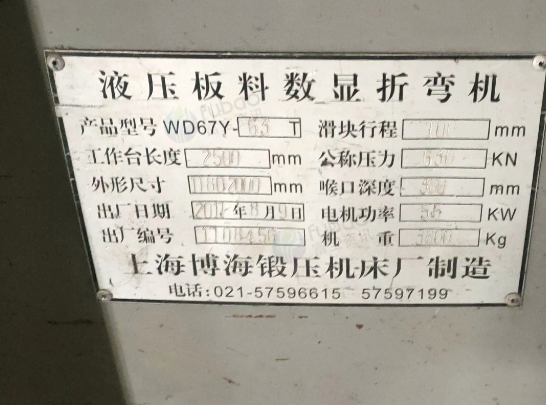 液压板料数显折弯机
产品型号 WD67Y-63 T 滑块行程 100 mm
工作台长度 2500 mm 公称压力 630 KN
外形尺寸 mm 喉口深度 mm
出厂日期 2012年8月9日 电机功率 5.5 KW
出厂编号 机 重 Kg
上海博海锻压机床厂制造
电话:021-57596615 57597199